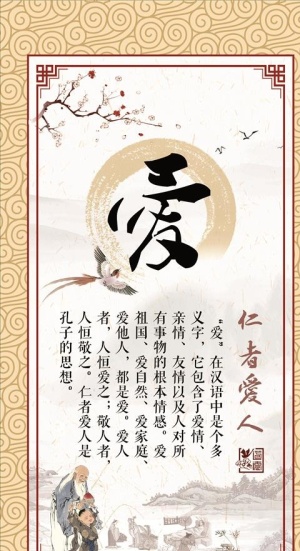 爱
仁者爱人
“爱”在汉语中是个多
义字，它包含了爱情、
亲情、友情以及人对所
有事物的根本情感。爱
祖国、爱自然、爱家庭、
爱他人，都是爱。爱人
者，人恒爱之；敬人者，
人恒敬之。仁者爱人是
孔子的思想。